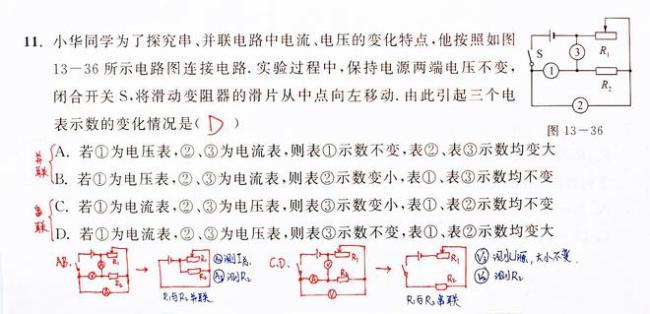 11. 小华同学为了探究串、并联电路中电流、电压的变化特点,他按照如图
13-36 所示电路图连接电路. 实验过程中,保持电源两端电压不变,
闭合开关 S,将滑动变阻器的滑片从中点向左移动. 由此引起三个电
表示数的变化情况是( D )
S
③
R₁
①
R₂
②
图 13-36
并联
A. 若①为电压表,②、③为电流表,则表①示数不变,表②、表③示数均变大
B. 若①为电压表,②、③为电流表,则表②示数变小,表①、表③示数均不变
串联
C. 若①为电流表,②、③为电压表,则表③示数变小,表①、表②示数均不变
D. 若①为电流表,②、③为电压表,则表③示数不变,表①、表②示数均变大
AB.
R₁
R₂
R₁与R₂并联
C.D.
R₁
R₂
R₁
R₂
R₁与R₂串联
大小不变
测R₂